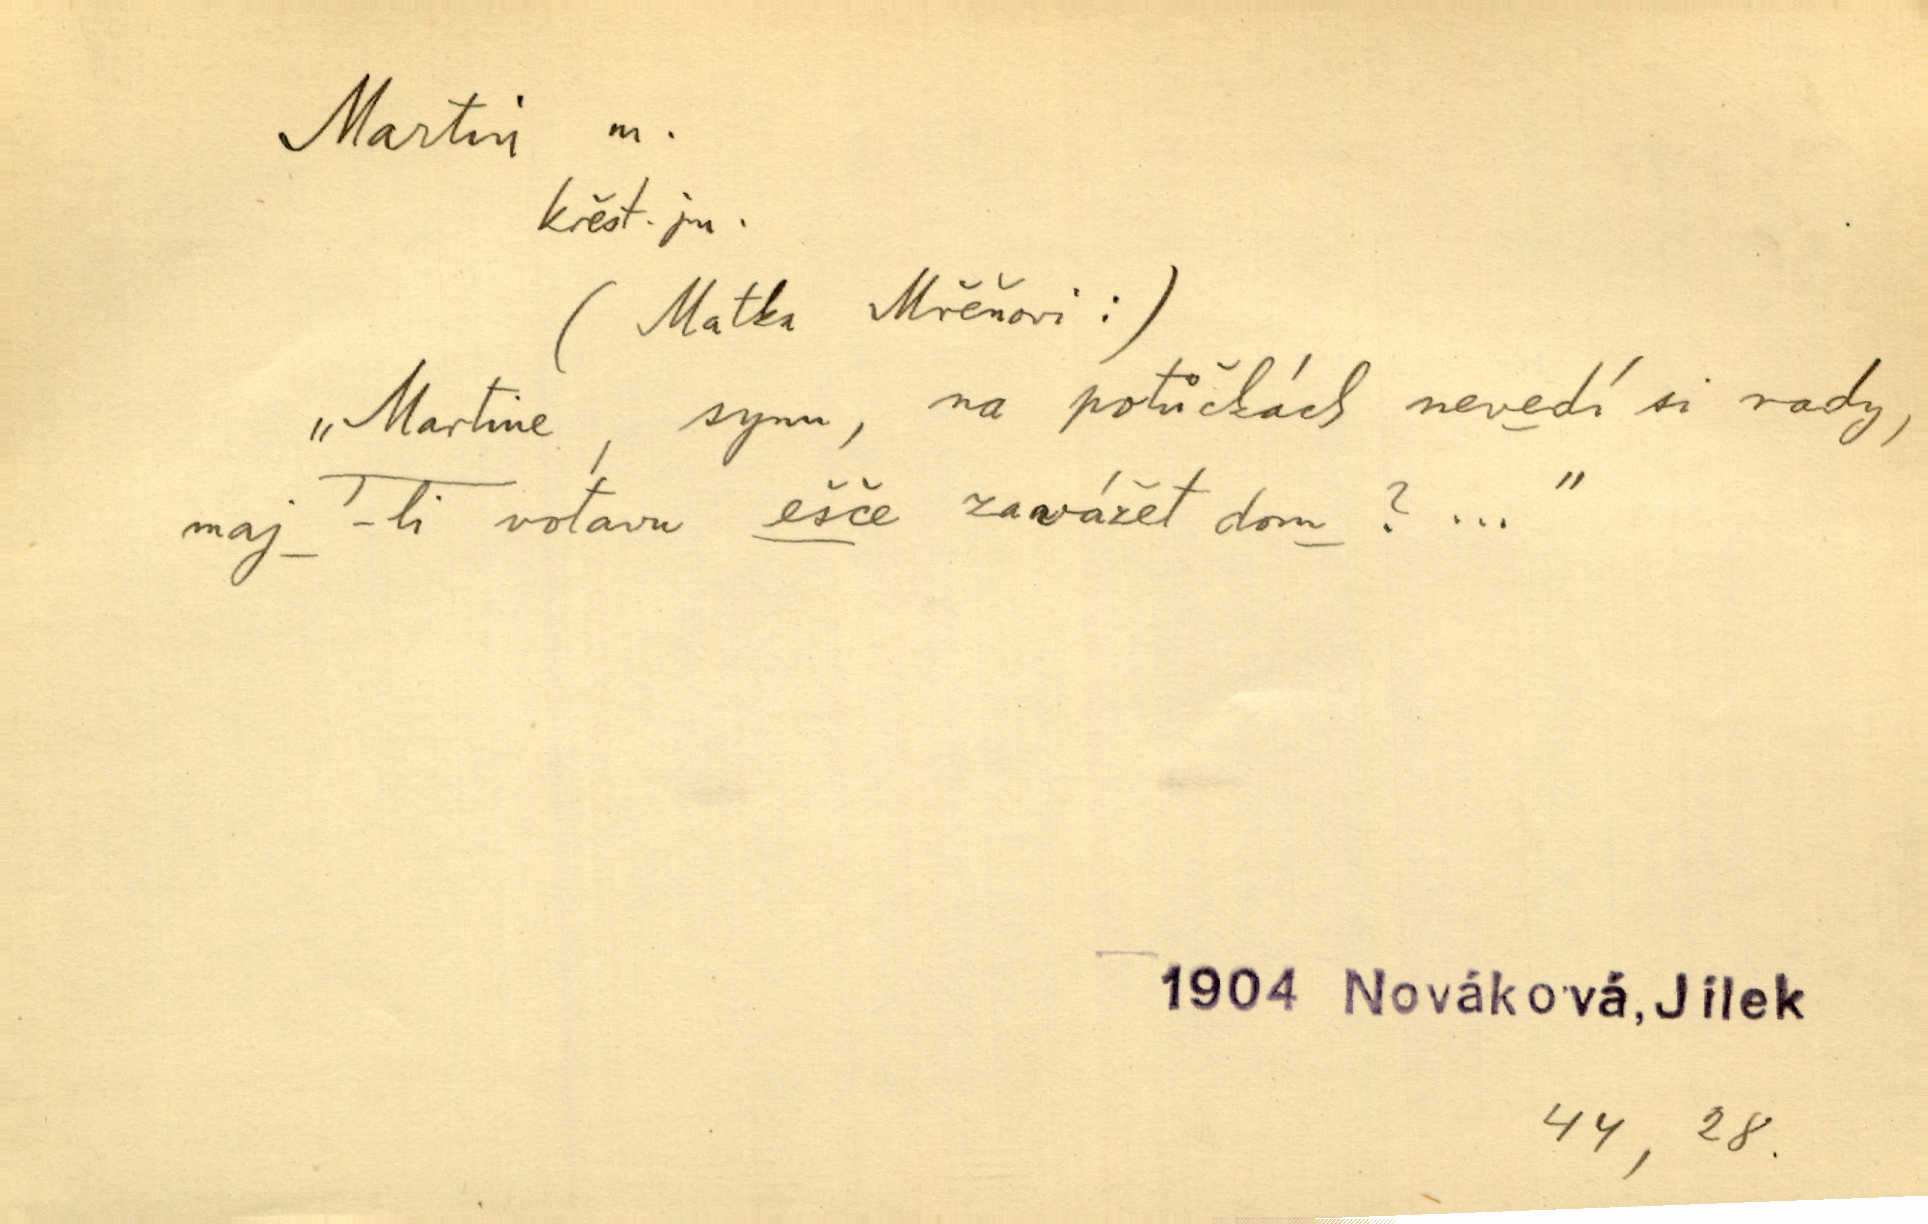 Martin m.
křest. jm.
( Matka Mřěňovi : )
„Martine, synu, na potůčkách nevedí si rady,
maj'-li votavu ešče zavážet dom ? ..."
1904 Nováková, Jilek
44, 28.